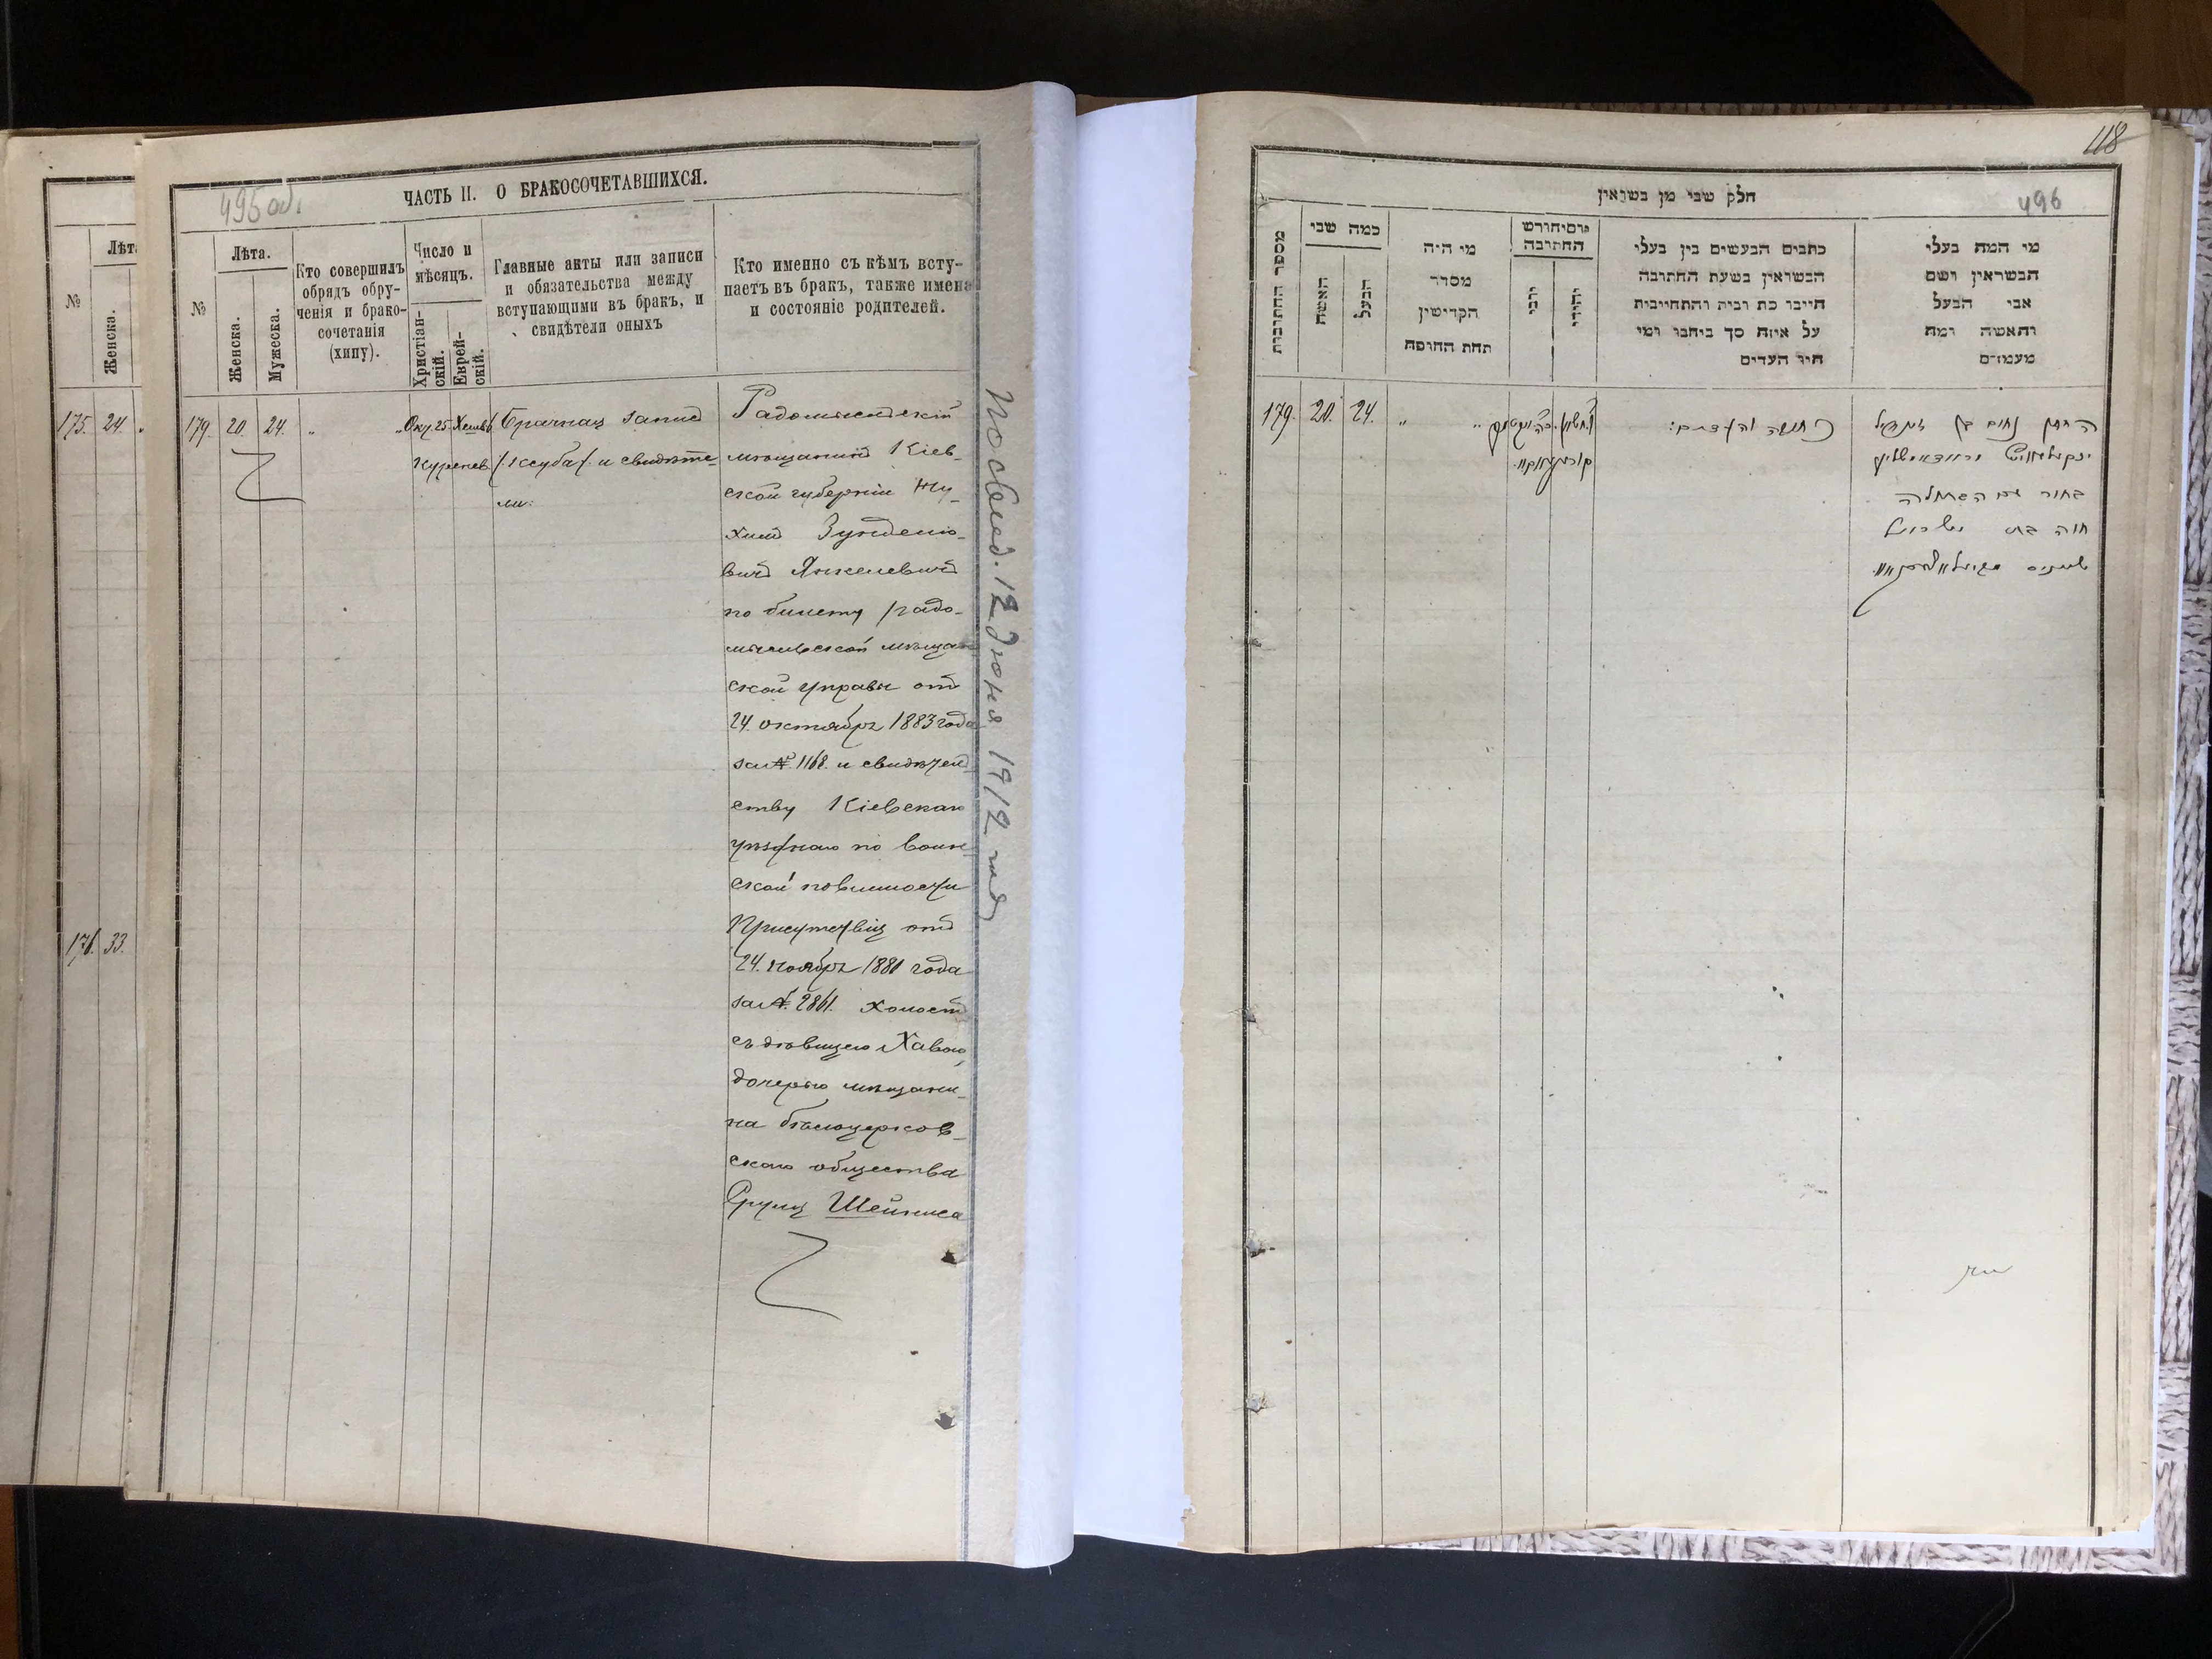 Лѣта
№
Женска.
175. 24. „
176. 33.
495 об.
ЧАСТЬ II. О БРАКОСОЧЕТАВШИХСЯ.
№
Лѣта.
Женска.
Мужеска.
Кто совершилъ
обрядъ обру-
ченія и брако-
сочетанія
(хипу).
Число и
мѣсяцъ.
Христіан-
скій.
Еврей-
скій.
Главные акты или записи
и обязательства между
вступающими въ бракъ, и
свидѣтели оныхъ
Кто именно съ кѣмъ всту-
паетъ въ бракъ, также имена
и состояніе родителей.
179. 20. 24. „ „
Окт. 25. Хешв. 6
Куренев
Брачная запис
/: Ксуба :/ и свидѣте-
ли:
Радомысльскій
мѣщанинъ Кіев-
ской губерніи Ну-
химъ Зунделіо-
вичъ Янкелевичъ
по билету радо-
мысльской мѣщан
ской управы отъ
24. октября 1883 года
за № 1168. и свидѣтель
ству Кіевскаго
уѣзднаго по воин-
ской повинности
Присутствія отъ
24. ноября 1881 года
за № 2861. холостъ
съ дѣвицею Хавою,
дочерью мѣщани-
на бѣлоцерков-
скаго общества
Сруля Шейниса
Послед. 12 Июня 1912 года
118
496
חלק שני מן נשואין
מספר החתונות
כמה שני
האשה
הבעל
מי היה
מסדר
הקדישין
תחת החופה
יום וחודש
החתונה
יהודי
כתבים הנעשים בין בעלי
הנשואין בשעת החתונה
היינו כת ובית והתחייבות
על איזה סך ביחבו ומי
היו העדים
מי המה בעלי
הנשואין ושם
אבי הבעל
והאשה ומה
מעמדם
179. 20. 24. „ „
החתן נחום בן זונדיל
בחור עם הבתולה
חוה בת ישרויל